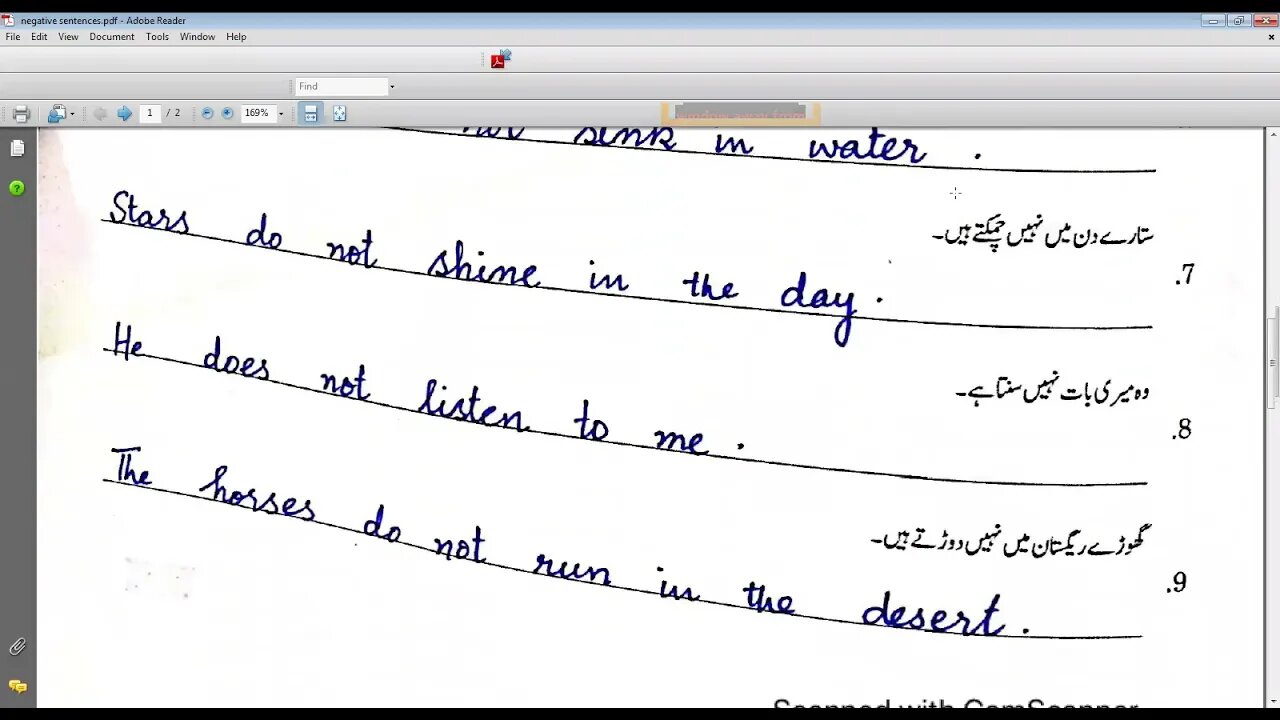 negative sentences.pdf - Adobe Reader
File Edit View Document Tools Window Help
Find
1 / 2 169%
not sink in water .
ستارے دن میں نہیں چمکتے ہیں۔ .7
Stars do not shine in the day .
وہ میری بات نہیں سنتا ہے۔ .8
He does not listen to me .
گھوڑے ریگستان میں نہیں دوڑتے ہیں۔ .9
The horses do not run in the desert .
Scanned with CamScanner